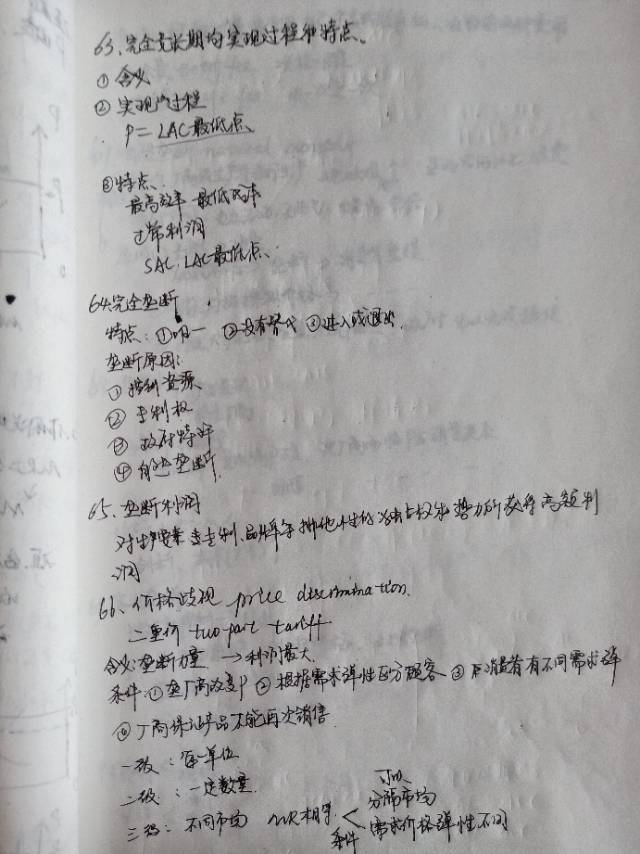 63、完全竞长期均实现过程和特点、
① 含义
② 实现的过程
P = LAC最低点、
③ 特点、
最高效率 最低成本
正常利润
SAC、LAC最低点、
64、完全垄断
特点：①唯一 ②没有替代 ③进入或退出
垄断原因：
① 控制资源
② 专利权
③ 政府特许
④ 自然垄断
65、垄断利润
对生产要素 专利、品牌等排他性的独占权和势力所获得高额利
润
66、价格歧视 price discrimination.
二重价 two-part tariff
含义：垄断力量 → 利润最大
条件：①垄厂商改变P ②根据需求弹性区分顾客 ③ 消费者有不同需求弹
④厂商保证产品不能再次销售
一级：每一单位
二级：一定数量
三级：不同市场 MR相等 < 可以
分隔市场
条件 需求价格弹性不同